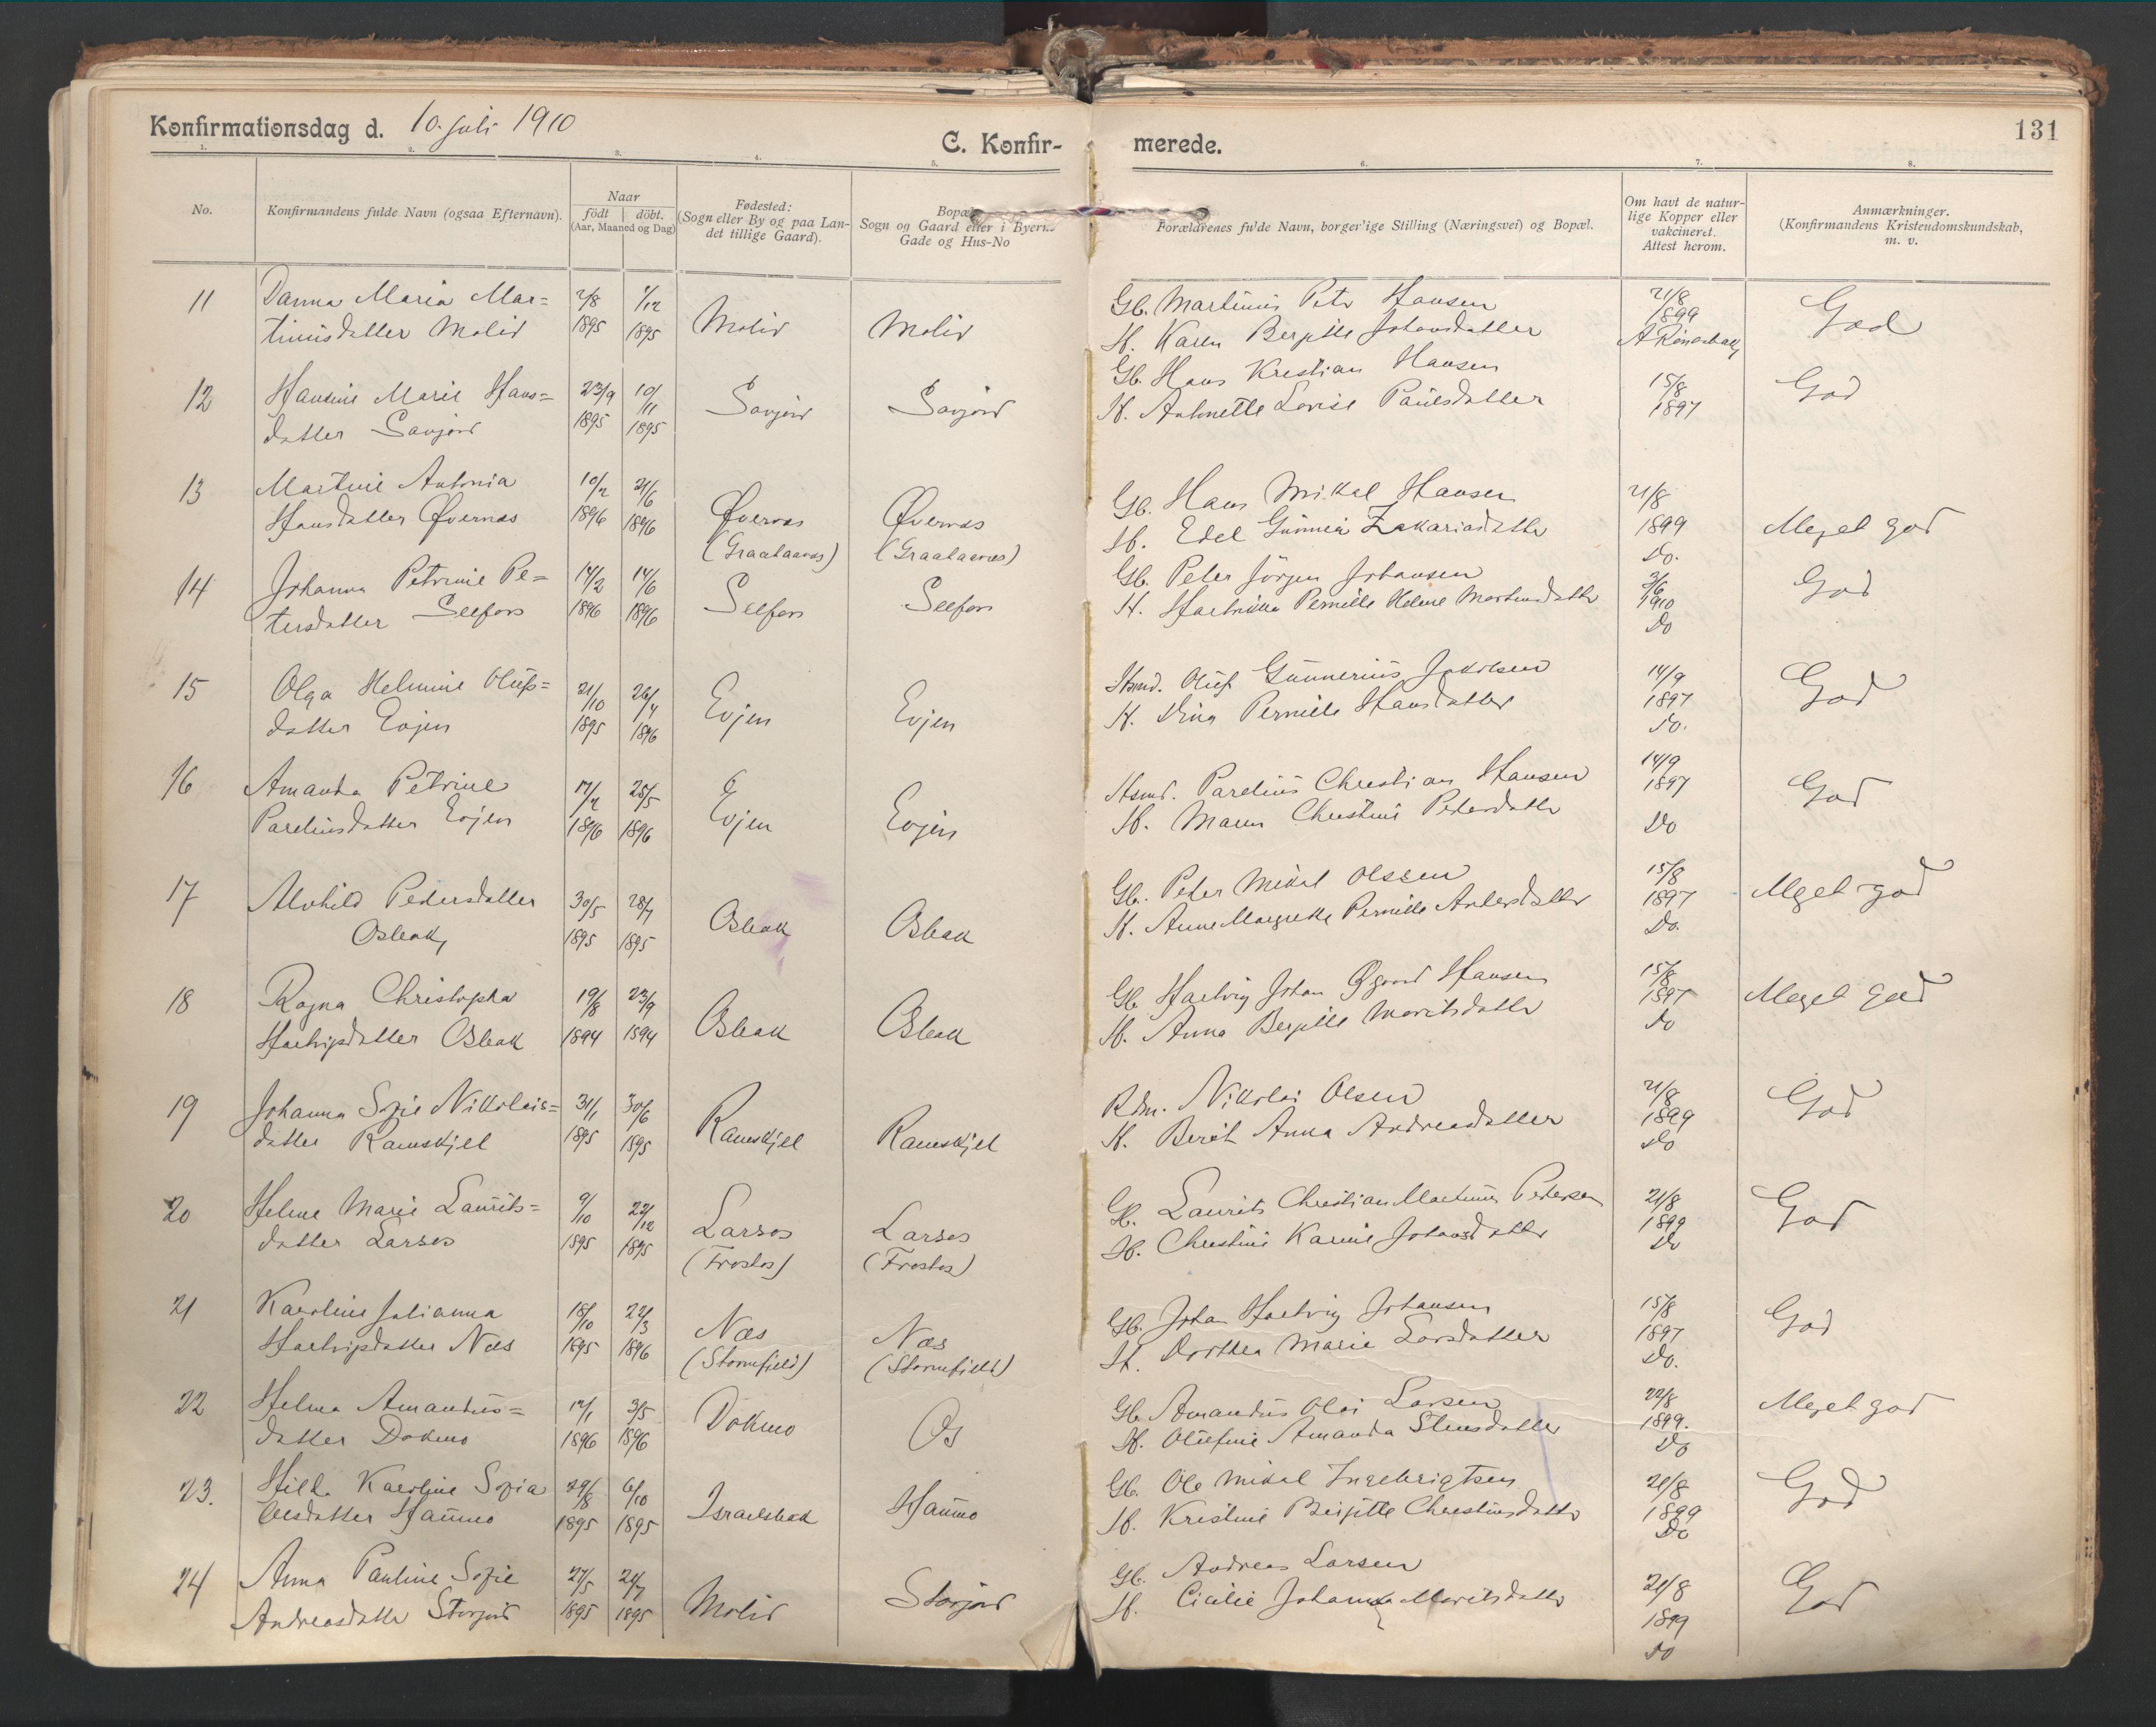 Konfirmationsdag d. 10. juli 1910
C. Konfir-
merede.
131
1. 2. 3. 4. 5. 6. 7. 8.
No.
Konfirmandens fulde Navn (ogsaa Efternavn).
Naar
födt | döbt.
(Aar, Maaned og Dag)
Fødested:
(Sogn eller By og paa Lan-
det tillige Gaard).
Bopæl
Sogn og Gaard eller i Byerne
Gade og Hus-No
Forældrenes fulde Navn, borgerlige Stilling (Næringsvei) og Bopæl.
Om havt de natur-
lige Kopper eller
vakcineret.
Attest herom.
Anmærkninger.
(Konfirmandens Kristendomskundskab,
m. v.
11 Danna Maria Mar= 2/8 1/12 Molid Molid Gb. Martinus Petr Hansen 21/8 God
tinusdatter Molid 1895 1895 H. Karen Bergitte Johansdatter 1899
12 Hansine Marie Hans= 23/9 10/11 Savjord Savjord Gb. Hans Kristian Hansen 15/8 God
datter Savjord 1895 1895 H. Antonette Lovise Paulsdatter 1897
13 Martine Antonia 10/2 21/6 Øvernes Øvernes Gb. Hans Mikal Hansen 21/8 Meget god
Hansdatter Øvernes 1896 1896 (Graataanes) (Graataanes) H. Edel Gunneia Zakariasdatter 1899
Do.
14 Johanna Petrine Pe= 14/2 14/6 Selfors Selfors Gb. Peter Jörgen Johansen 3/6 God
tersdatter Selfors 1896 1896 H. Hartvikka Pernille Helene Mortensdatter 1910
Do
15 Olga Helmine Olufs= 21/10 26/4 Evjen Evjen Husmd. Oluf Gunnerius Jakobsen 14/9 God
datter Evjen 1895 1896 H. Dina Pernille Hansdatter 1897
Do.
16 Amanda Petrine 17/2 25/5 Evjen Evjen Husmd. Parelius Christian Hansen 14/9 God
Pareliusdatter Evjen 1896 1896 H. Maren Christine Pedersdatter 1897
Do
17 Alvhild Pedersdatter 30/5 28/7 Osbak Osbak Gb. Peter Mikal Olsen 15/8 Meget god
Osbak 1895 1895 H. Anne Margrethe Pernille Andersdatter 1897
Do.
18 Ragna Christopha 19/8 23/9 Osbak Osbak Gb. Hartvig Johan Øgord Hansen 15/8 Meget god
Hartvigsdatter Osbak 1894 1894 H. Anna Bergitte Moritsdatter 1897
Do
19 Johanna Sofie Nikolais= 31/1 30/6 Ramskjel Ramskjel Rdm. Nikolai Olsen 21/8 God
datter Ramskjel 1895 1895 H. Berit Anna Andreasdatter 1899
Do
20 Helene Marie Laurits= 9/10 22/12 Larsos Larsos Gb. Laurits Christian Martinus Pedersen 21/8 God
datter Larsos 1895 1895 (Frostos) (Frostos) H. Christine Karine Johansdatter 1899
Do
21 Karoline Julianna 18/10 22/3 Næs Næs Gb. Johan Hartvig Johansen 15/8 God
Hartvigsdatter Næs 1895 1896 (Stormfjeld) (Stormfjeld) H. Dorthea Marie Larsdatter 1897
Do.
22 Helma Amandus= 12/1 3/5 Dokmo Os Gb. Amandus Olai Larsen 22/8 Meget god
datter Dokmo 1896 1896 H. Olufine Amanda Stensdatter 1899.
Do
23. Hilda Karoline Sofia 29/8 6/10 Israelsbak Haumo Gb. Ole Mikal Ingebrigtsen 21/8 God
Olesdatter Haumo 1895 1895 H. Kristine Birgitte Christensdatter 1899
Do
24 Anna Pauline Sofie 27/5 21/7 Molid Storjord Gb. Andreas Larsen 21/8 God
Andreasdatter Storjord 1895 1895 H. Cicilie Johanna Moritsdatter 1899
Do